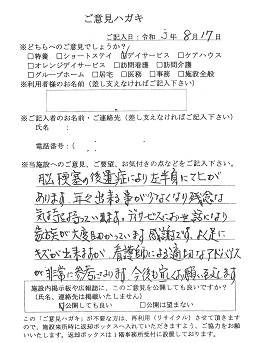 ご意見ハガキ
ご記入日：令和 3年 8月17日
※どちらへのご意見でしょうか？
□特養 □ショートステイ ☑デイサービス □ケアハウス
□オレンジデイサービス □訪問看護 □訪問介護
□グループホーム □居宅 □医務 □事務 □施設全般
※利用者様のお名前（差し支えなければご記入下さい）
※ご記入者のお名前・ご連絡先（差支えなければご記入下さい）
氏名：
電話番号：（
※当施設へのご意見、ご要望、お気付きの点などをご記入下さい。
脳梗塞の後遺症により左半身にマヒが
あります。年々出来る事が少なくなり残念な
気持を持っています。デイサービスにお世話になり
家族が大変助かっています。感謝です。よく足に
キズが出来ますが、看護師による適切なアドバイス
が非常に参考になります。今後も宜しくお願い致します
施設内掲示板や広報誌に、このご意見を公開しても良いですか？
（氏名、連絡先は掲載いたしません）
☑公開しても良い □公開は望まない
この「ご意見ハガキ」が不要な方は、再利用（リサイクル）させて頂きます
ので、施設来所時に返却ボックスへ入れてくださいますよう、ご協力をお願
いいたします。返却ボックスは１階事務所受付に設置しております。